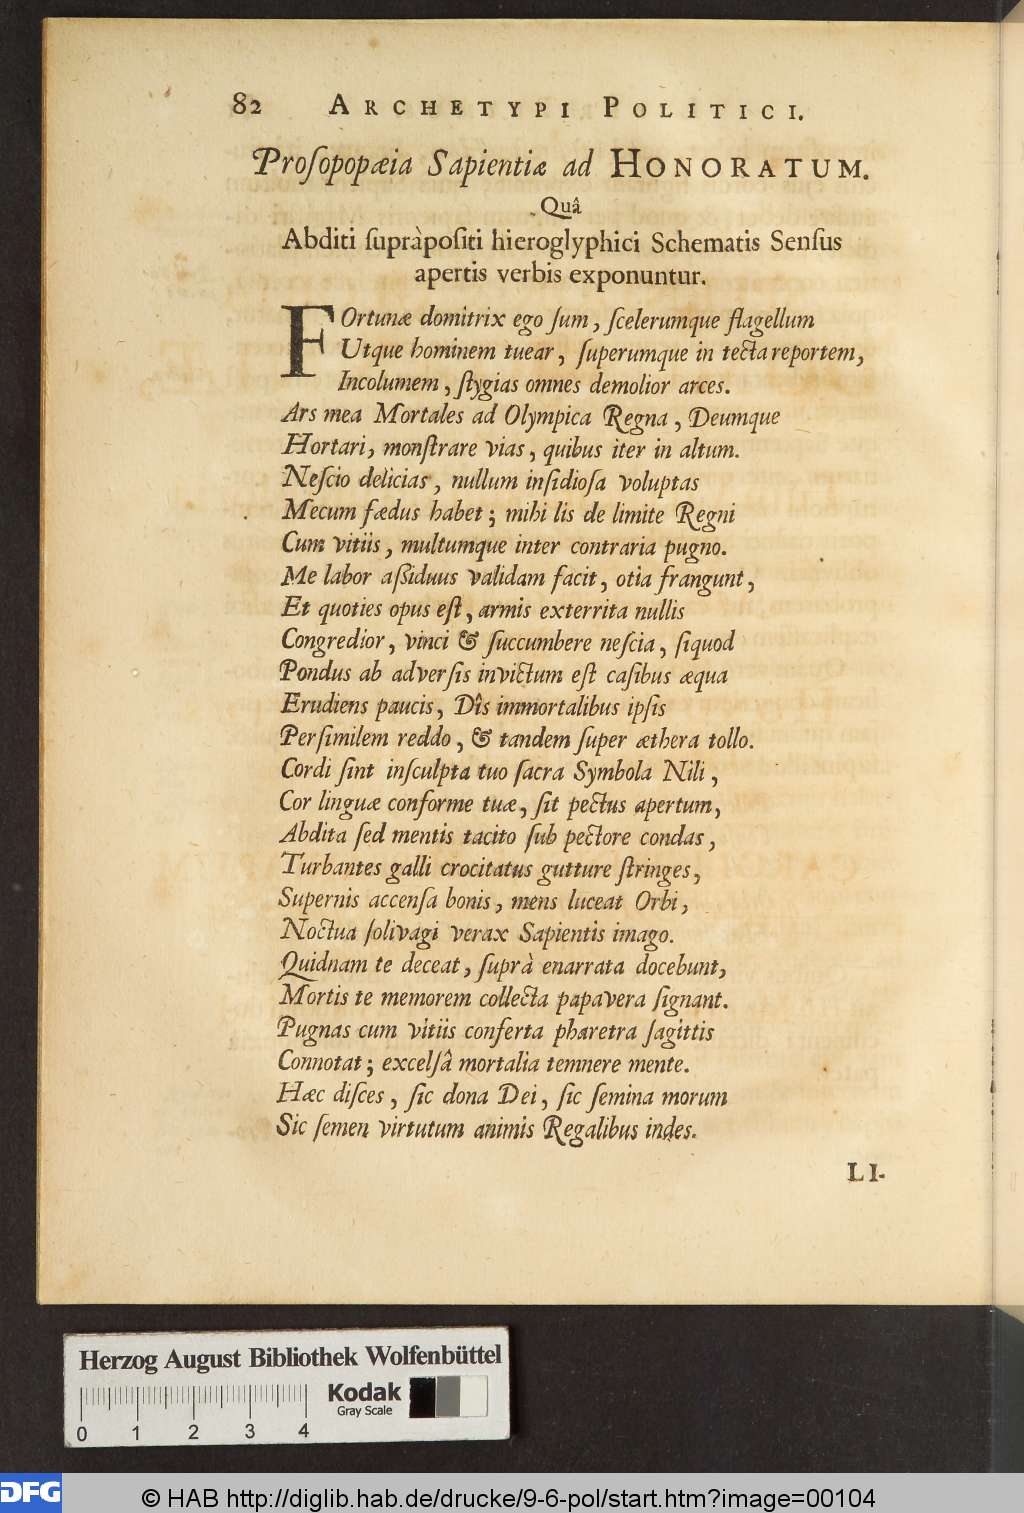 82 ARCHETYPI POLITICI.
Proſopopæia Sapientiæ ad HONORATUM.
Quâ
Abditi ſupràpoſiti hieroglyphici Schematis Senſus
apertis verbis exponuntur.
FOrtunæ domitrix ego ſum, ſcelerumque flagellum
Utque hominem tuear, ſuperumque in tecta reportem,
Incolumem, ſtygias omnes demolior arces.
Ars mea Mortales ad Olympica Regna, Deumque
Hortari, monſtrare vias, quibus iter in altum.
Neſcio delicias, nullum inſidioſa voluptas
Mecum fædus habet; mihi lis de limite Regni
Cum vitiis, multumque inter contraria pugno.
Me labor aſſiduus validam facit, otia frangunt,
Et quoties opus eſt, armis exterrita nullis
Congredior, vinci & ſuccumbere neſcia, ſiquod
Pondus ab adverſis invictum eſt caſibus æqua
Erudiens paucis, Dîs immortalibus ipſis
Perſimilem reddo, & tandem ſuper æthera tollo.
Cordi ſint inſculpta tuo ſacra Symbola Nili,
Cor linguæ conforme tuæ, ſit pectus apertum,
Abdita ſed mentis tacito ſub pectore condas,
Turbantes galli crocitatus gutture ſtringes,
Supernis accenſa bonis, mens luceat Orbi,
Noctua ſolivagi verax Sapientis imago.
Quidnam te deceat, ſuprà enarrata docebunt,
Mortis te memorem collecta papavera ſignant.
Pugnas cum vitiis conferta pharetra ſagittis
Connotat; excelſâ mortalia temnere mente.
Hæc diſces, ſic dona Dei, ſic ſemina morum
Sic ſemen virtutum animis Regalibus indes.
LI-
Herzog August Bibliothek Wolfenbüttel
Kodak
Gray Scale
0 1 2 3 4
DFG
© HAB http://diglib.hab.de/drucke/9-6-pol/start.htm?image=00104